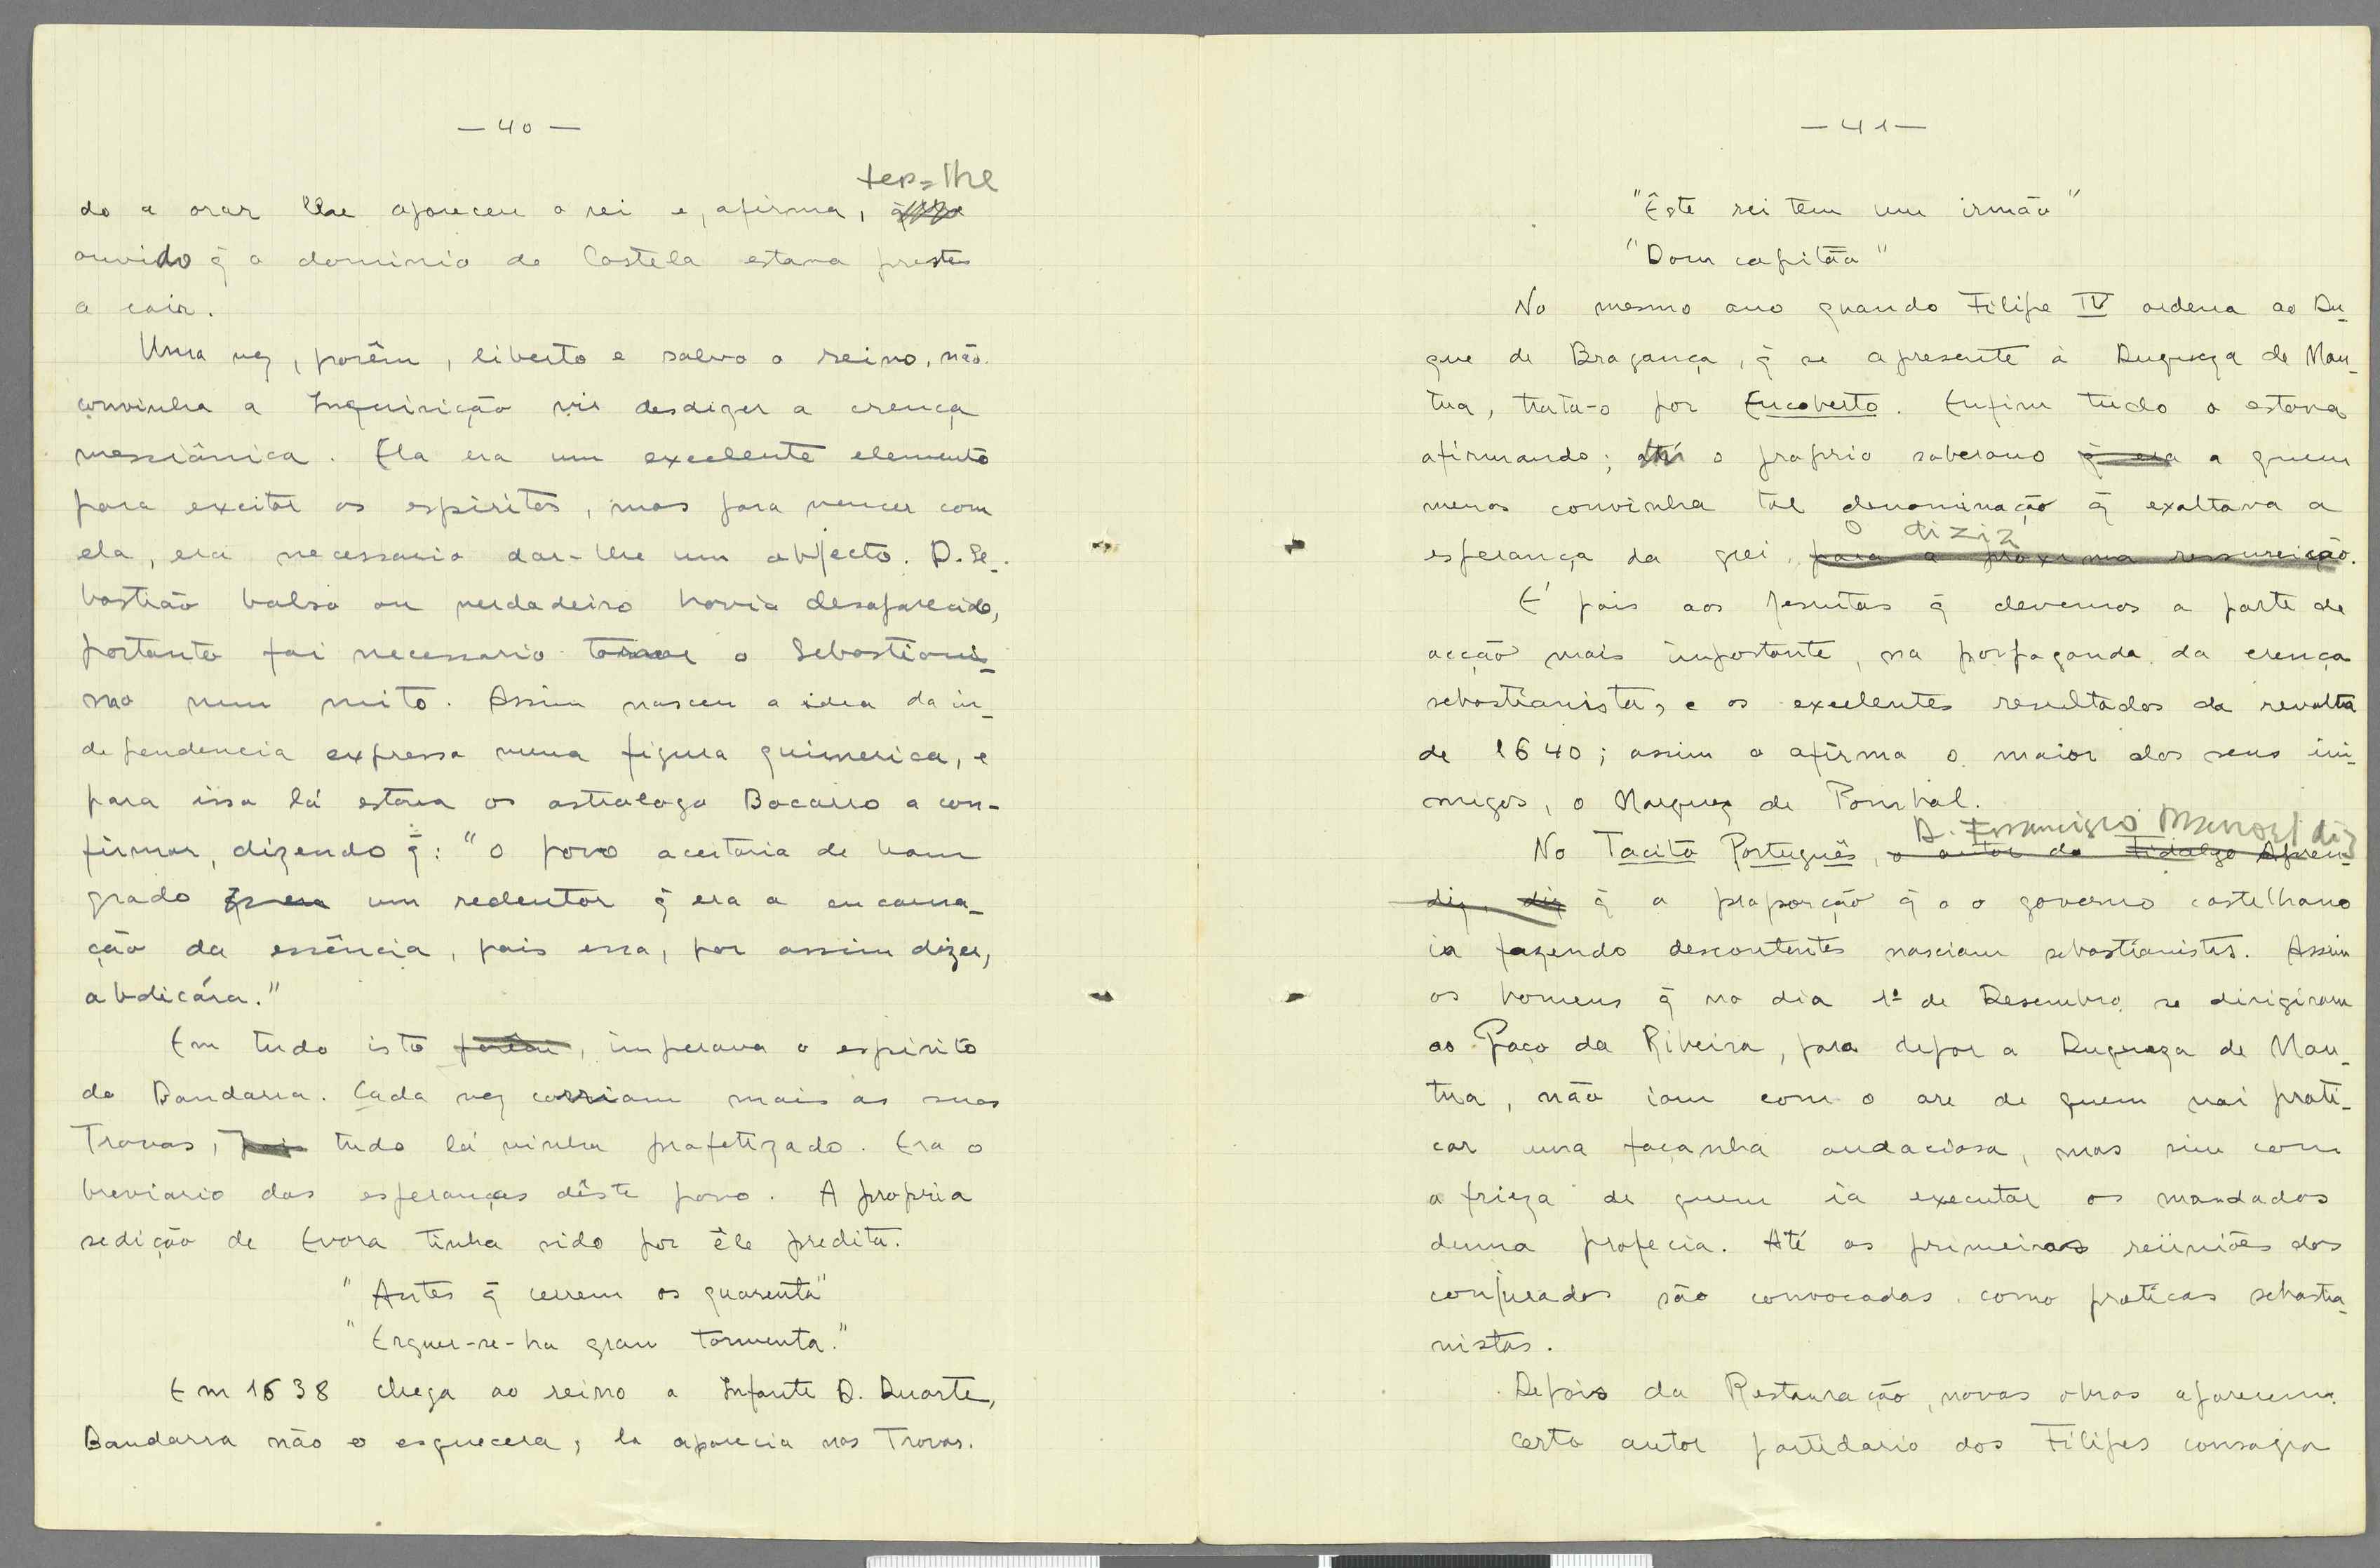 — 40 —
ter-lhe
do a orar lhe apareceu o rei e, afirma,
ouvido q̃ o dominio de Castela estava prestes
a cair.
Uma vez, porêm, liberto e salvo o reino, não
convinha a Inquisição vir desdizer a crença
messiânica. Ela era um excelente elemento
para excitar os espiritos, mas para vencer com
ela, era necessario dar-lhe um objecto. D. Se-
bastião balso ou verdadeiro havia desaparecido,
portanto foi necessario tornar o Sebastianis-
mo num mito. Assim nasceu a idea da in-
dependencia expressa numa figura quimerica, e
para isso lá estava os astrologo Bocarro a con-
firmar, dizendo q̃: "O povo aceitaria de bom
grado um redentor q̃ era a encarna-
ção da essência, pois essa, por assim dizer,
abdicára."
Em tudo isto porêm, imperava o espirito
do Bandarra. Cada vez corriam mais as suas
Trovas, pois tudo lá vinha profetizado. Era o
breviario das esperanças dêste povo. A propria
sedição de Evora tinha sido por êle predita.
"Antes q̃ cerrem os quarenta"
"Erguer-se-ha gran tormenta."
Em 1638 chega ao reino o Infante D. Duarte,
Bandarra não o esquecera, la aparecia nas Trovas.
— 41 —
"Êste rei tem um irmão"
"Dom capitão"
No mesmo ano quando Filipe IV ordena ao Du-
que de Bragança, q̃ se apresente à Duqueza de Man-
tua, trata-o por Encoberto. Enfim tudo o estava
afirmando; até o proprio soberano q̃ era a quem
menos convinha tal denominação q̃ exaltava a
o dizia
esperança da grei para a proxima ressureição.
E' pois aos Jesuitas q̃ devemos a parte de
acção mais importante, na porpaganda da crença
sebastianista, e os excelentes resultados da revolta
de 1640; assim o afirma o maior dos seus ini-
migos, o Marquez de Pombal.
D. Francisco Manoel diz
No Tacito Português, o autor do Fidalgo Apren-
diz, diz q̃ a proporção q̃ o o governo castelhano
ia fazendo descontentes nasciam sebastianistas. Assim
os homens q̃ no dia 1º de Desembro se dirigiram
ao Paço da Ribeira, para depor a Duqueza de Man-
tua, não iam com o are de quem vai prati-
car uma façanha audaciosa, mas sim com
a frieza de quem ia executar os mandados
duma profecia. Até as primeiras reüniões dos
conjurados são convocadas como praticas sebastia-
nistas.
Depois da Restauração, novas obras aparecem.
Certo autor partidario dos Filipes consagra